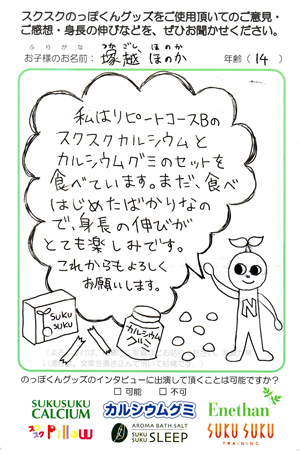 スクスクのっぽくんグッズをご使用頂いてのご意見・
ご感想・身長の伸びなどを、ぜひお聞かせください。
ふりがな つかごし ほのか
お子様のお名前: 塚越 ほのか 年齢(14)
私はリピートコースBの
スクスクカルシウムと
カルシウムグミのセットを
食べています。まだ、食べ
はじめたばかりなの
で、身長の伸びが
とても楽しみです。
これからもよろしく
お願いします。
SUKU
SUKU
カルシウム
グミ
N
のっぽくんグッズのインタビューに出演して頂くことは可能ですか?
□可能 □不可
SUKUSUKU
CALCIUM
カルシウムグミ
Enethan
スクスク Pillow
AROMA BATH SALT
SUKU
SUKU SLEEP
SUKU SUKU
TRAINING